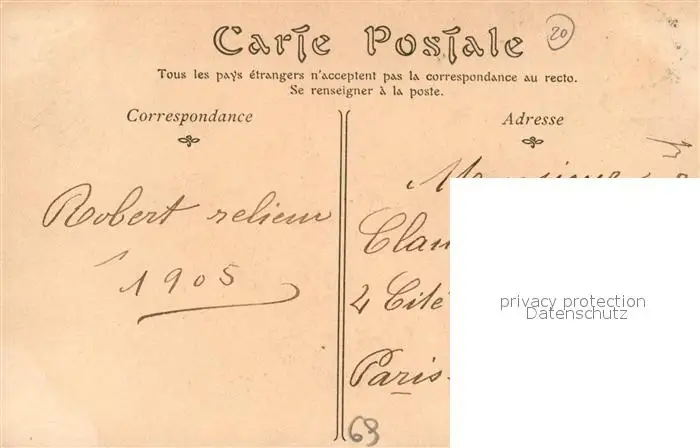 Carte Postale
20
Tous les pays étrangers n'acceptent pas la correspondance au recto.
Se renseigner à la poste.
Correspondance
Adresse
Robert relieur
1905
Monsieur
Clau
2 Cité
Paris
63
privacy protection
Datenschutz